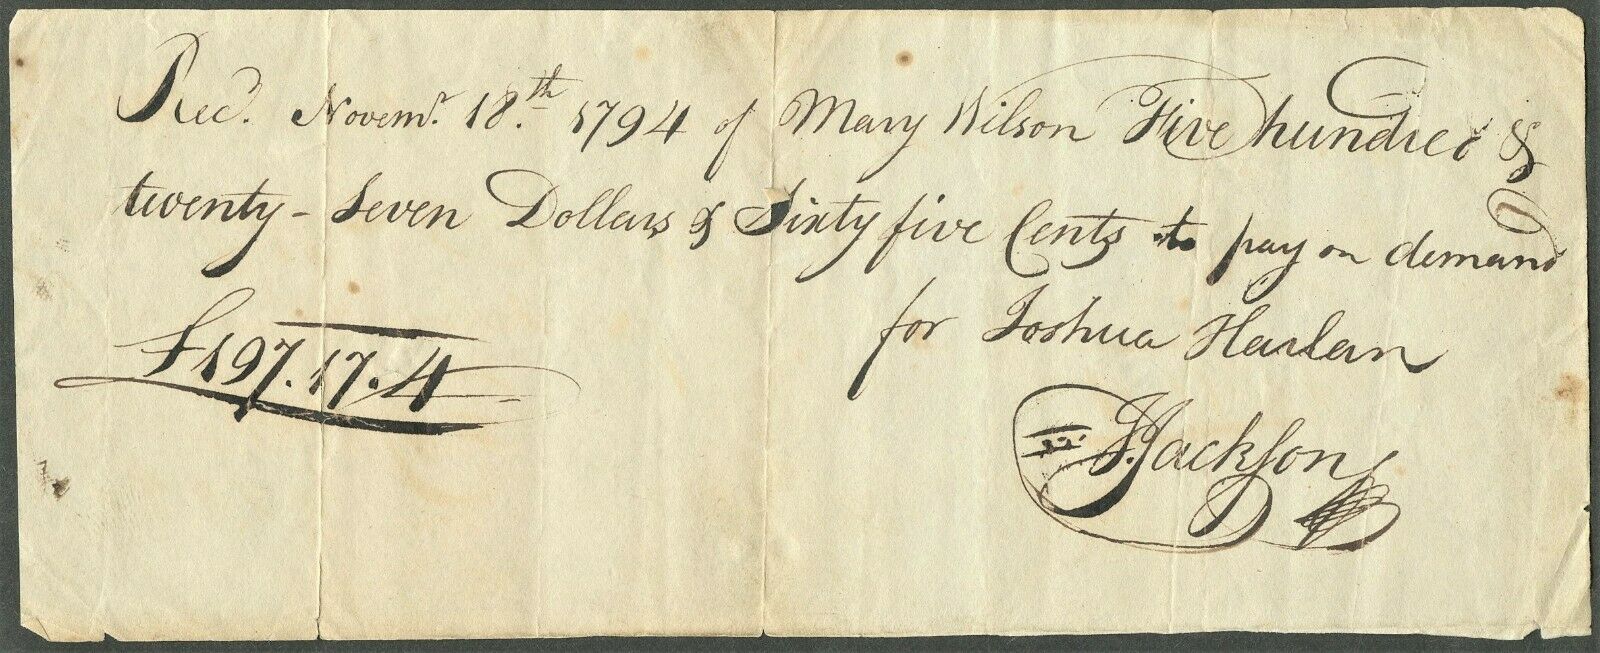 Rec.d Novem.r 18.th 1794 of Mary Wilson Five hundred &
twenty - Seven Dollars & Sixty five Cents to pay on demand
for Joshua Harlan
£197.17.4
Jackson